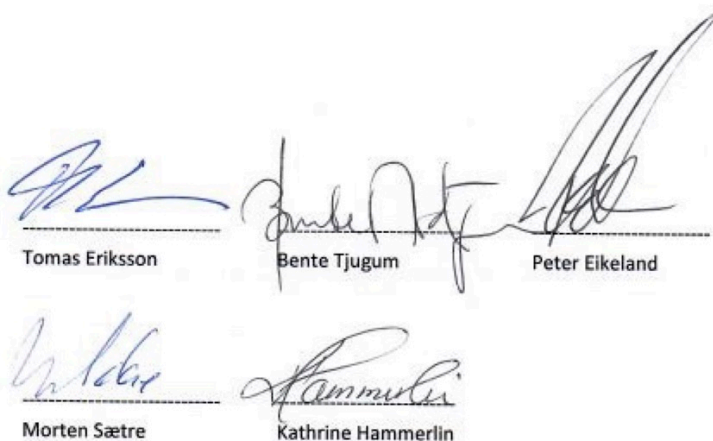 Tomas Eriksson
Bente Tjugum
Peter Eikeland
Morten Sætre
Kathrine Hammerlin